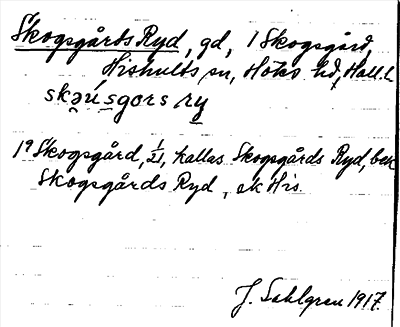 Skogsgårds Ryd, gd, 1 Skogsgård,
Hishults sn, Höks hd, Hall. l.
skǝú̯sgɑrs ry
1⁹ Skogsgård, 1/21, kallas Skogsgårds Ryd, bek
Skogsgårds Ryd, ek His.
J. Sahlgren 1917.